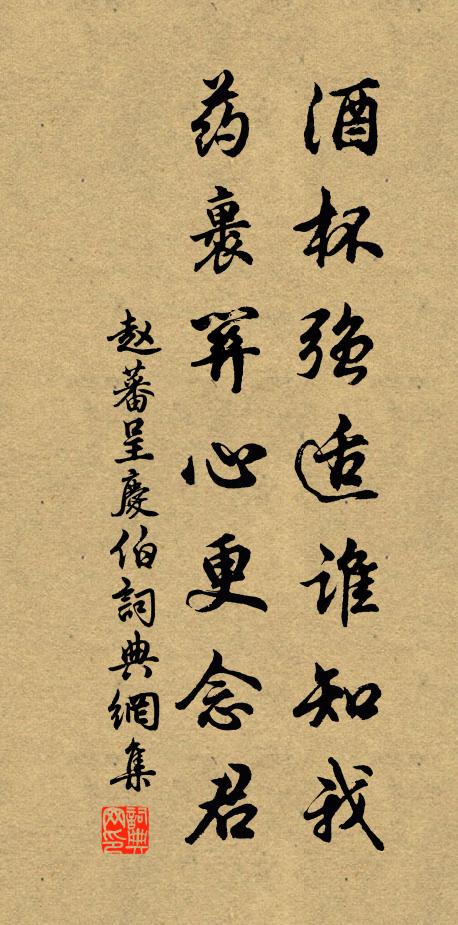 酒杯强适谁知我
药裹关心更念君
赵蕃呈慶伯詞典網集
詞典网印